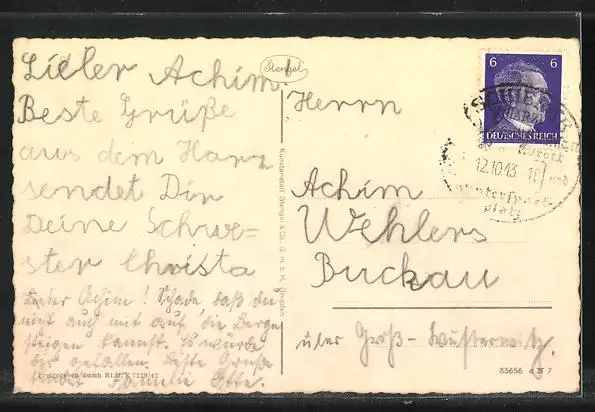 Lieber Achim!
Beste Grüße
aus dem Harz
sendet Dir
Deine Schwe=
ster Christa
Lieber Achim! Schade, daß du
nicht auch mit auf die Berge
steigen kannst. Es würde
dir gefallen. Beste Grüße
Familie Otte.
Freigegeben durch RLM.
Stengel
Kunstanstalt Stengel & Co. G. m. b. H. Dresden
6 6
DEUTSCHES REICH
SCHIERKE
Kurort
12.10.43 18
und
Wintersport
platz
Herrn
Achim
Wehlers
Buckau
über Groß-Wusterwitz.
83656 d N 7